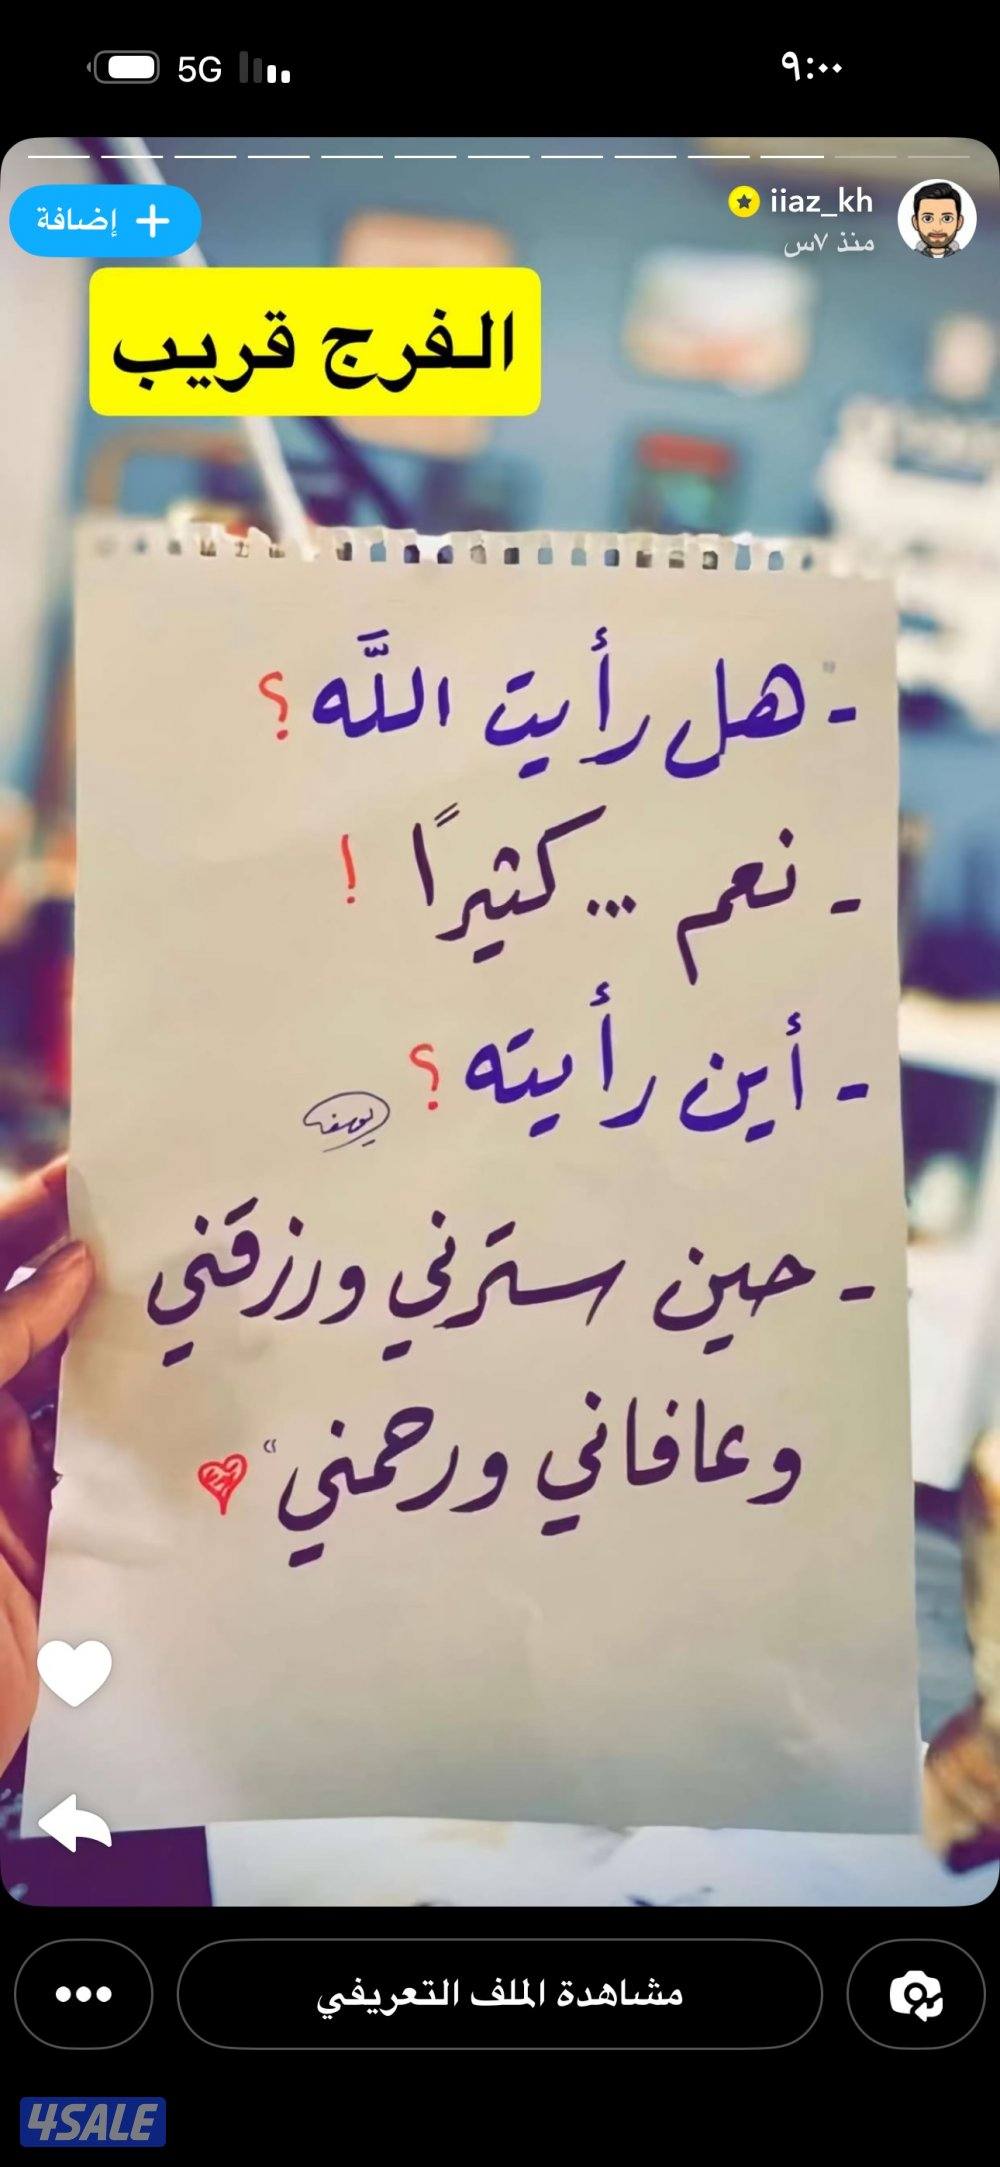 ٩:٠٠
5G
iiaz_kh
منذ ٧س
+ إضافة
الفرج قريب
- "هل رأيت اللَّه؟
- نعم ... كثيرًا !
- أين رأيته؟
يوسف
- حين سترني ورزقني
وعافاني ورحمني"
مشاهدة الملف التعريفي
4SALE